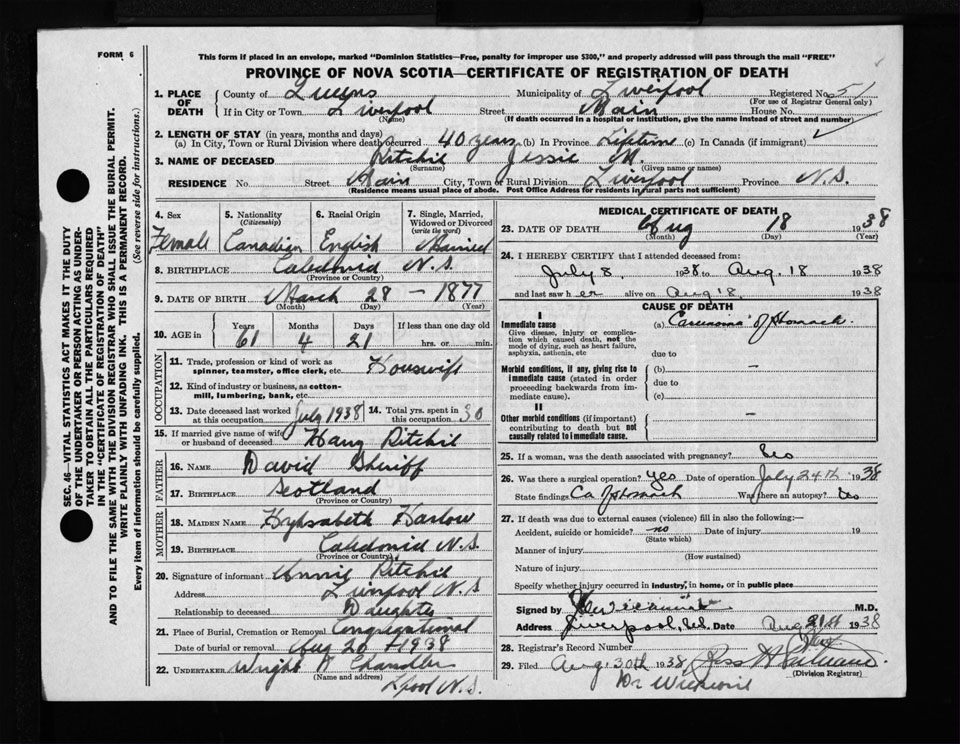 FORM 6
This form if placed in an envelope, marked "Dominion Statistics—Free, penalty for improper use $300," and properly addressed will pass through the mail "FREE"
PROVINCE OF NOVA SCOTIA—CERTIFICATE OF REGISTRATION OF DEATH
1. PLACE OF DEATH
County of Queens Municipality of Liverpool Registered No. 51
(For use of Registrar General only)
If in City or Town Liverpool Street Main House No.
(Name) (If death occurred in a hospital or institution, give the name instead of street and number)
2. LENGTH OF STAY (in years, months and days)
(a) In City, Town or Rural Division where death occurred 40 years (b) In Province Lifetime (c) In Canada (if immigrant)
3. NAME OF DECEASED Ritchie Jessie M.
(Surname) (Given name or names)
RESIDENCE No. Street Main City, Town or Rural Division Liverpool Province N.S.
(Residence means usual place of abode. Post Office Address for residents in rural parts not sufficient)
4. Sex Female
5. Nationality (Citizenship) Canadian
6. Racial Origin English
7. Single, Married, Widowed or Divorced (write the word) Married
8. BIRTHPLACE Caledonia N.S.
(Province or Country)
9. DATE OF BIRTH March 28 - 1877
(Month) (Day) (Year)
10. AGE in Years Months Days If less than one day old
61 4 21 hrs. or min.
OCCUPATION
11. Trade, profession or kind of work as spinner, teamster, office clerk, etc. Houswife
12. Kind of industry or business, as cotton-mill, lumbering, bank, etc.
13. Date deceased last worked at this occupation July 1938
14. Total yrs. spent in this occupation 30
15. If married give name of wife or husband of deceased Harry Ritchie
FATHER
16. NAME David Shiriff
17. BIRTHPLACE Scotland
MOTHER
18. MAIDEN NAME Harlow
19. BIRTHPLACE Caledonia N.S.
(Province or Country)
20. Signature of informant Annie Ritchie
Address Liverpool N.S
Relationship to deceased Daughter
21. Place of Burial, Cremation or Removal Congregational
Date of burial or removal Aug 20 1938
22. UNDERTAKER Wright Chandler
(Name and address)
Lpool N.S.
MEDICAL CERTIFICATE OF DEATH
23. DATE OF DEATH Aug 18 1938
(Month) (Day) (Year)
24. I HEREBY CERTIFY that I attended deceased from:
July 8, 1938 to Aug. 18 1938
and last saw her alive on Aug 18, 1938
CAUSE OF DEATH
I
Immediate cause (a) Carcinoma of Stomach.
Give disease, injury or complication which caused death, not the mode of dying, such as heart failure, asphyxia, asthenia, etc
due to
Morbid conditions, if any, giving rise to immediate cause (stated in order proceeding backwards from immediate cause).
(b) —
due to
(c)
II
Other morbid conditions (if important) contributing to death but not causally related to immediate cause. —
25. If a woman, was the death associated with pregnancy? No
26. Was there a surgical operation? yes Date of operation July 24th 1938
State findings Ca of stomach Was there an autopsy? No
27. If death was due to external causes (violence) fill in also the following:—
Accident, suicide or homicide? no Date of injury 19
(State which)
Manner of injury
(How sustained)
Nature of injury
Specify whether injury occurred in industry, in home, or in public place
Signed by M.D.
Address Liverpool, N.S. Date Aug 21st 1938
28. Registrar's Record Number
29. Filed Aug 30th 1938
(Division Registrar)
SEC. 46—VITAL STATISTICS ACT MAKES IT THE DUTY OF THE UNDERTAKER OR PERSON ACTING AS UNDERTAKER TO OBTAIN ALL THE PARTICULARS REQUIRED IN THE "CERTIFICATE OF REGISTRATION OF DEATH" AND TO FILE THE SAME WITH THE DIVISION REGISTRAR WHO SHALL ISSUE THE BURIAL PERMIT.
WRITE PLAINLY WITH UNFADING INK. THIS IS A PERMANENT RECORD.
Every item of information should be carefully supplied. (See reverse side for instructions.)